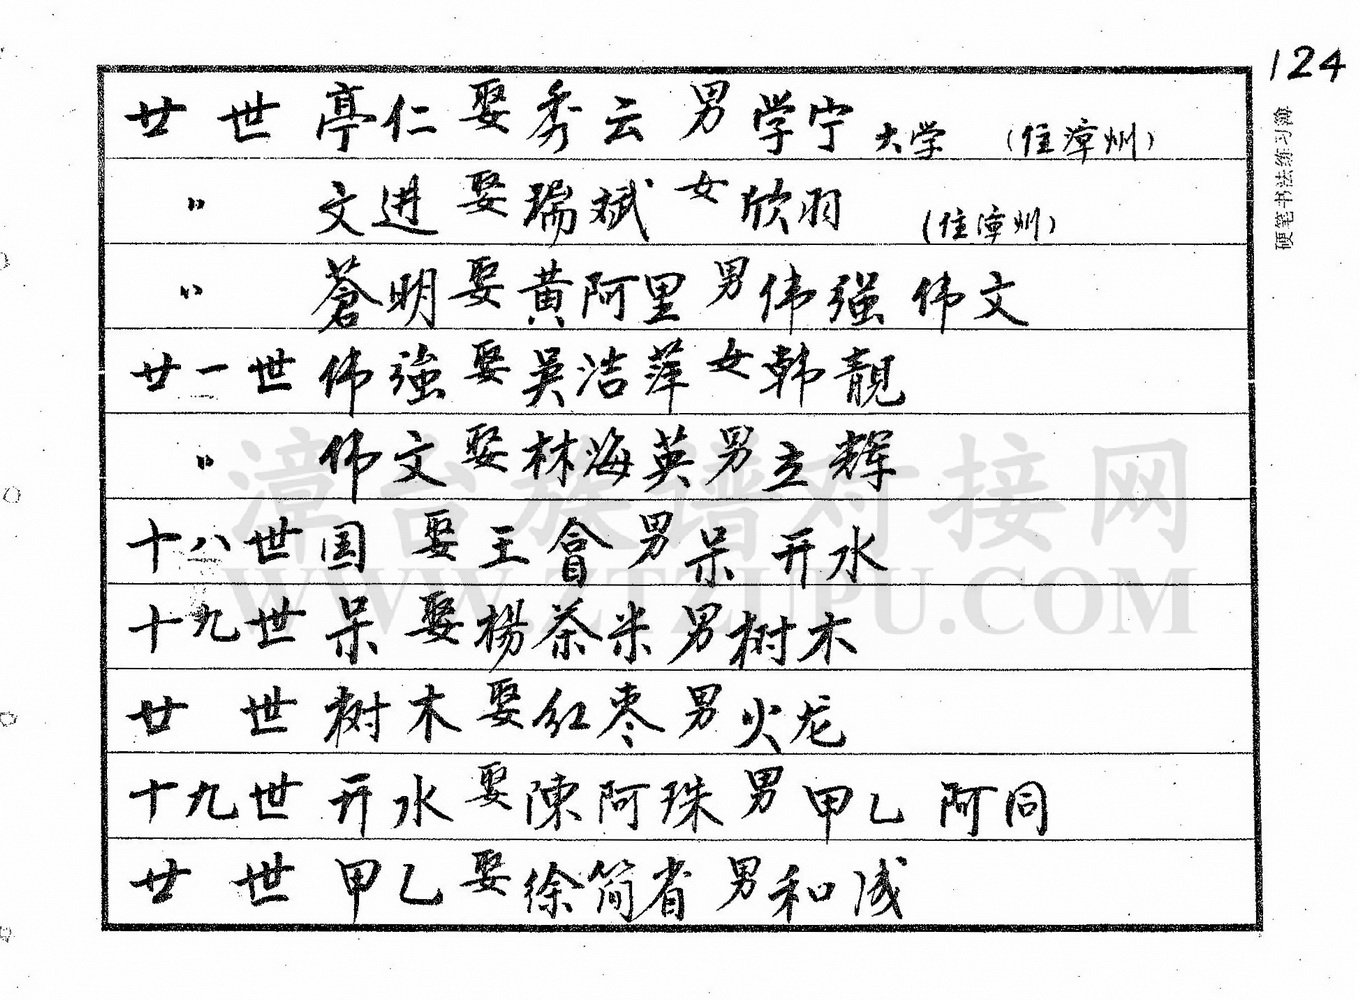 124
硬笔书法练习簿
廿世 亭仁 娶 秀云 男 学宁 大学 (住漳州)
〃 文进 娶 瑞斌 女 欣羽 (住漳州)
〃 蒼明 娶 黄阿里 男 伟强 伟文
廿一世 伟強 娶 吴洁萍 女 韩靚
〃 伟文 娶 林海英 男 立辉
十八世 国 娶 王 男 呆 开水
十九世 呆 娶 楊茶米 男 树木
廿世 树木 娶 红枣 男 火龙
十九世 开水 娶 陳阿珠 男 甲乙 阿同
廿世 甲乙 娶 徐简省 男 和
漳台族谱对接网
WWW.ZTZUPU.COM